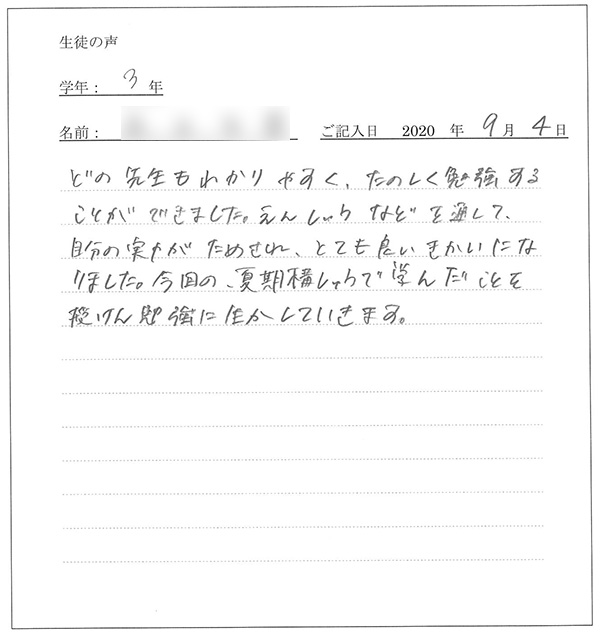 生徒の声
学年： 3 年
名前： ご記入日 2020 年 9 月 4 日
どの先生もわかりやすく、たのしく勉強する
ことができました。えんしゅうなどを通して、
自分の実力がためせれ、とても良いきかいにな
りました。今回の、夏期構しゅうで学んだことを
受けん勉強に生かしていきます。